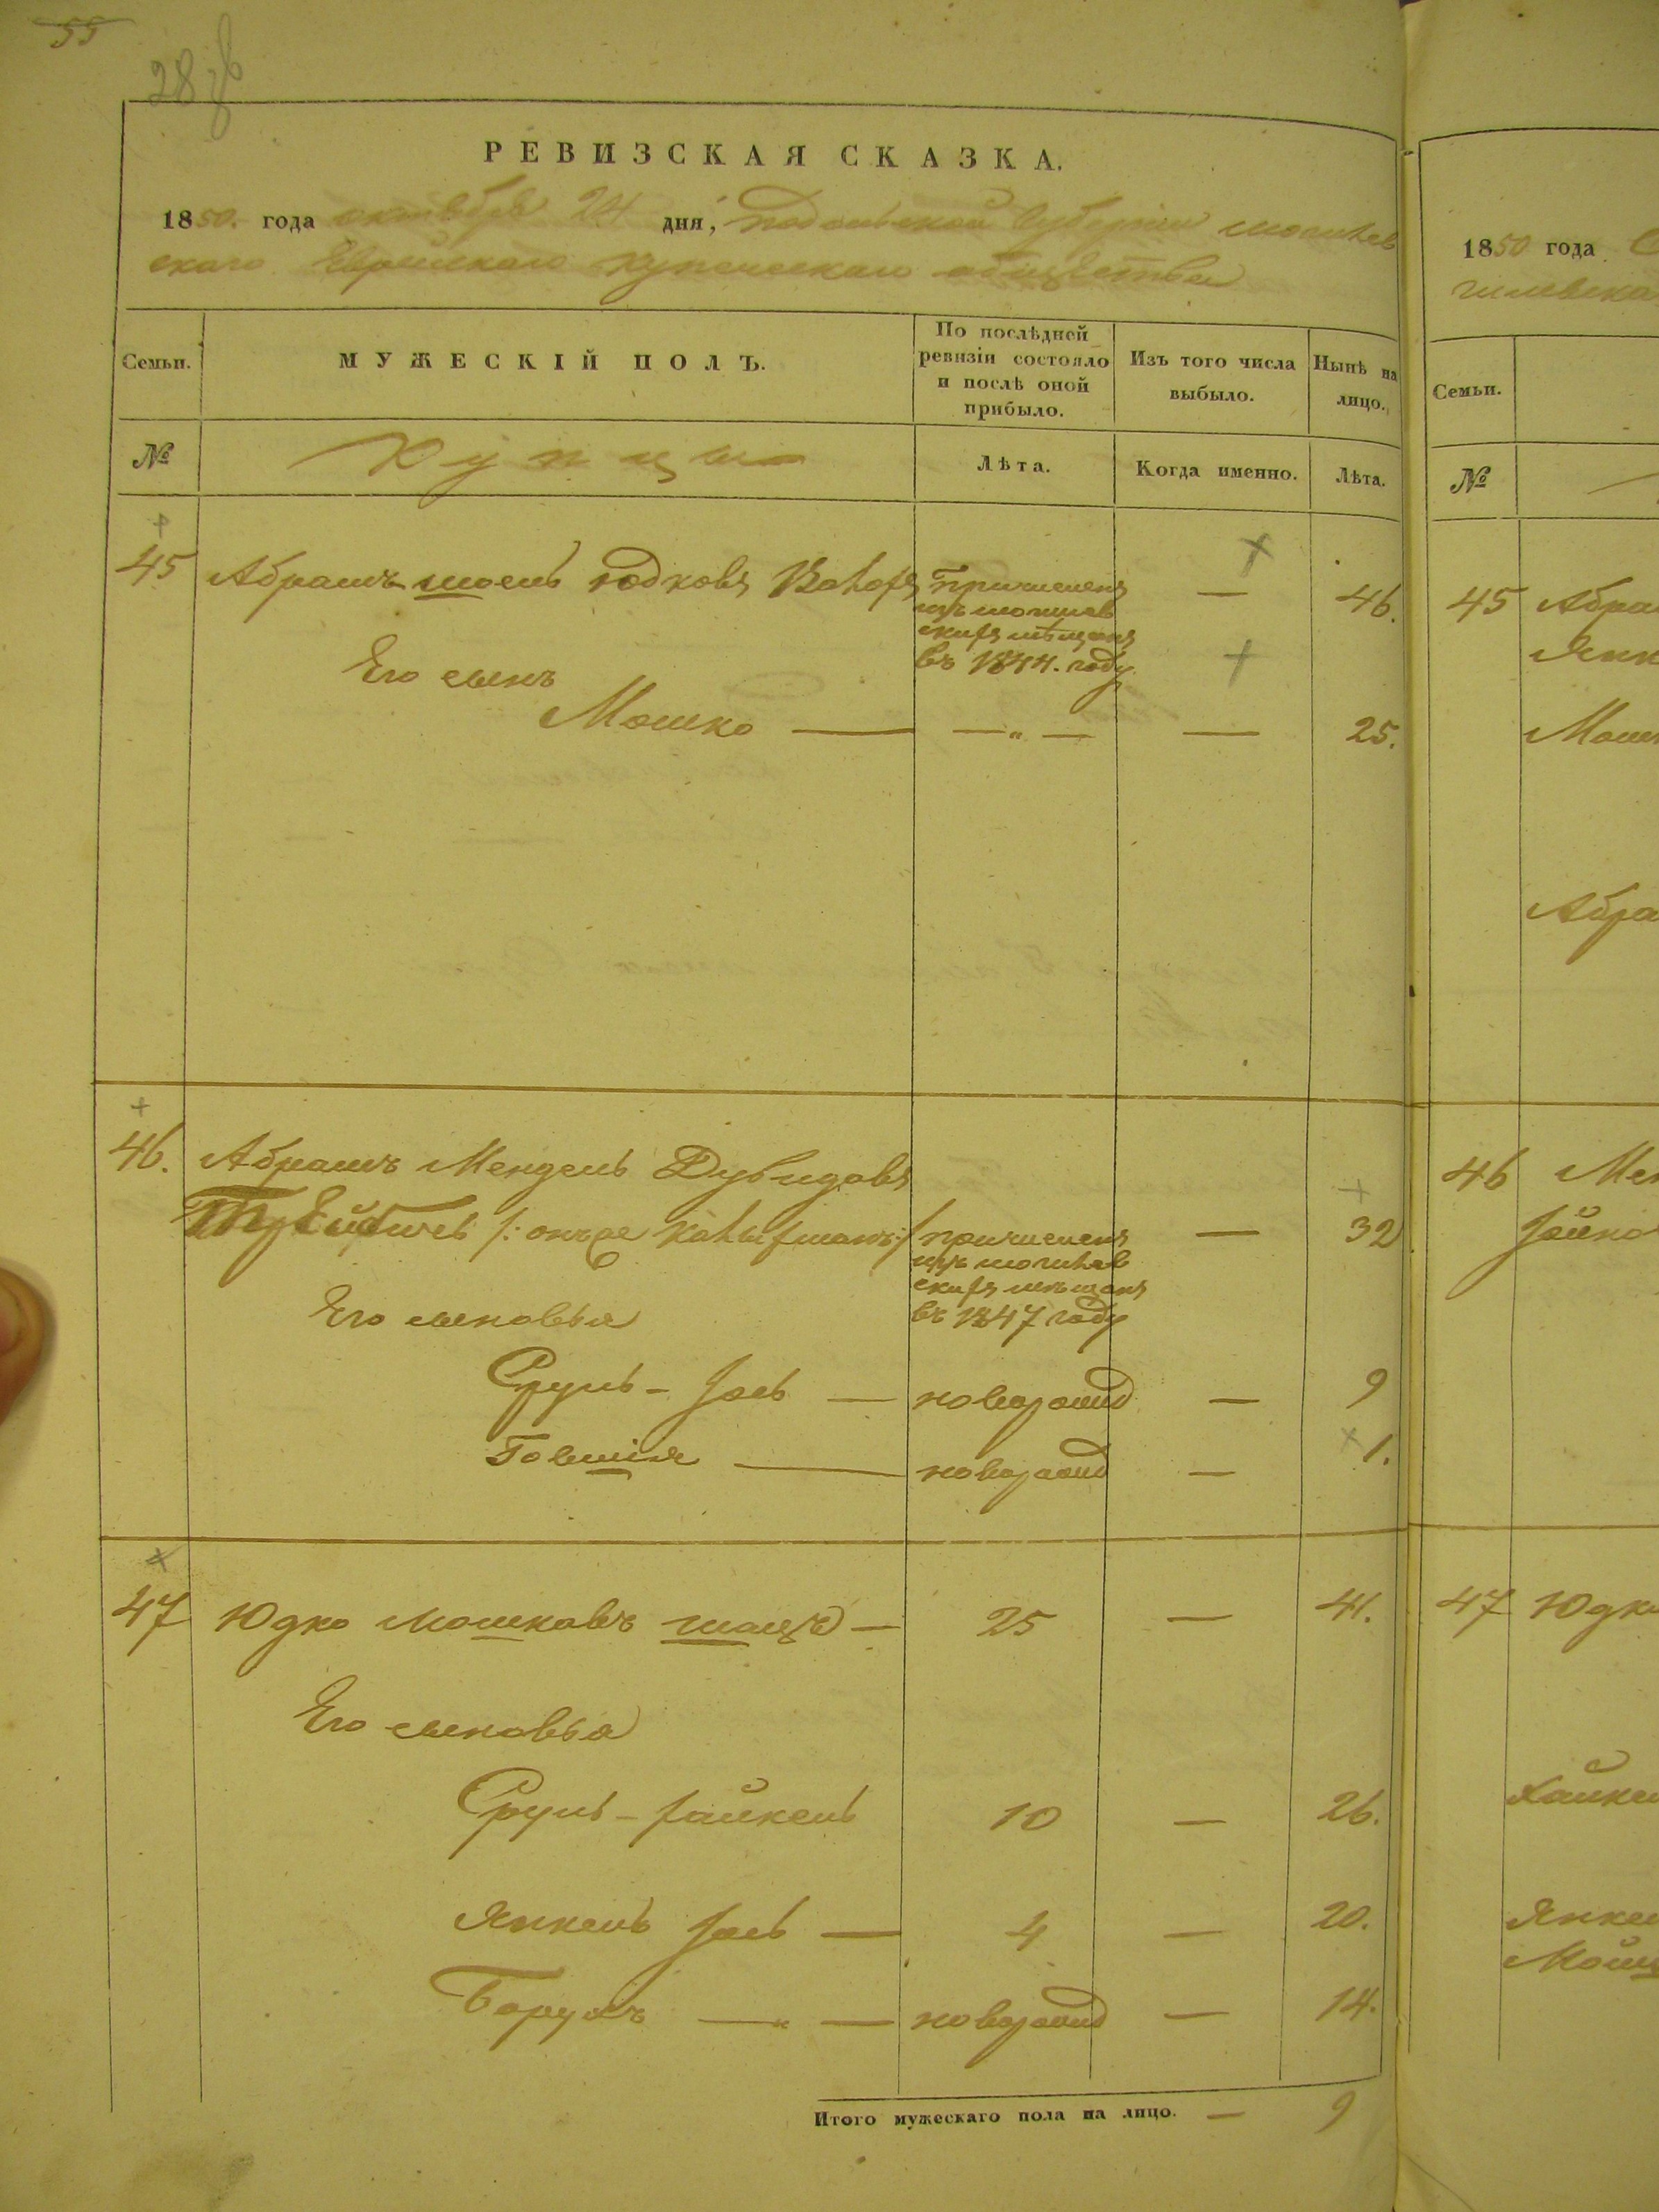 55
28
РЕВИЗСКАЯ СКАЗКА.
1850. года октября 24 дня, подольской Губернии могилев
скаго Еврейскаго купеческаго общества
Семьи.
МУЖЕСКІЙ ПОЛЪ.
По послѣдней ревизіи состояло и послѣ оной прибыло.
Изъ того числа выбыло.
Нынѣ на лицо.
№
Купцы
Лѣта.
Когда именно.
Лѣта.
45 Абрамъ Юдковъ — 46.
причисленъ
изъ могилев
скихъ мѣщанъ
въ 1844. году
Его сынъ
Мошко — — „ — — 25.
46. Абрамъ Мендель Дувидовъ
/: онъ же :/ причисленъ — 32
изъ могилев
скихъ мѣщанъ
въ 1847 году
Его сыновья
Сруль - Іось — новорожд — 9
Говшія — новорожд — 1.
47 Юдко Мошковъ шацъ — 25 — 41.
Его сыновья
Сруль - Хайкель 10 — 26.
Янкель Іось — 4 — 20.
Борухъ — „ — новорожд — 14.
Итого мужескаго пола на лицо. — 9
1850 года
Семьи.
№
45 Абра
Мошк
Абра
46 Мен
47 Юдк
Хайкел
Янкел